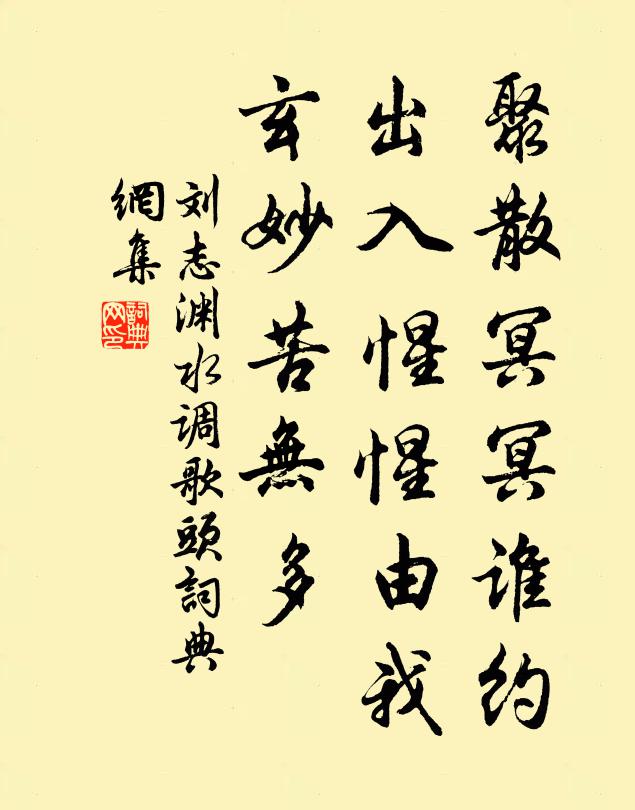 聚散冥冥谁约
出入惺惺由我
玄妙苦無多
刘志渊水调歌頭詞典
網集
詞典
网印